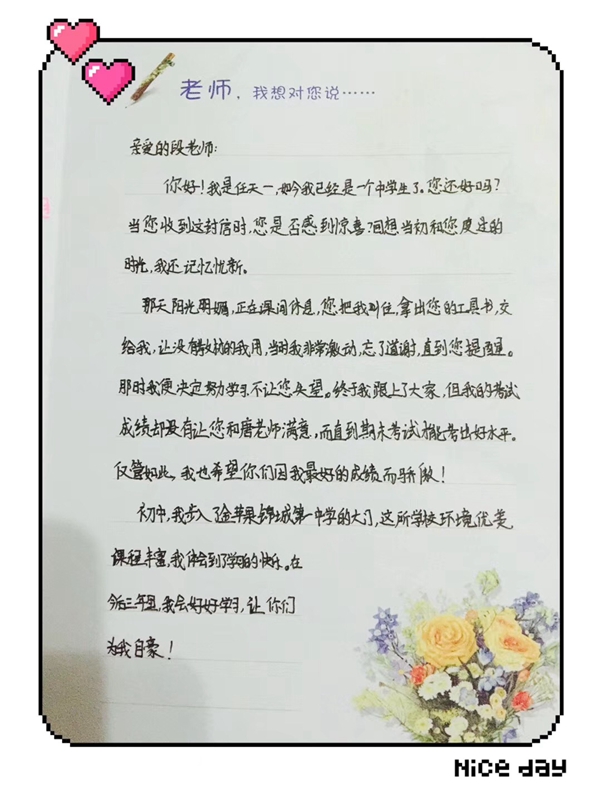 老师，我想对您说……
亲爱的段老师：
你好！我是任天一，如今我已经是一个中学生了。您还好吗？
当您收到这封信时，您是否感到惊喜？回想当初和您度过的
时光，我还记忆忧新。
那天阳光明媚，正在课间休息，您把我叫住，拿出您的工具书，交
给我，让没有教材的我用，当时我非常激动，忘了道谢，直到您提醒。
那时我便决定努力学习，不让您失望。终于我跟上了大家，但我的考试
成绩却没有让您和唐老师满意，而直到期末考试才能考出好水平。
仅管如此，我也希望你们因我最好的成绩而骄傲！
初中，我步入了金苹果锦城第一中学的大门，这所学校环境优美
课程丰富，我体会到了学习的快乐。在
今后三年里，我会好好学习，让你们
为我自豪！
Nice day